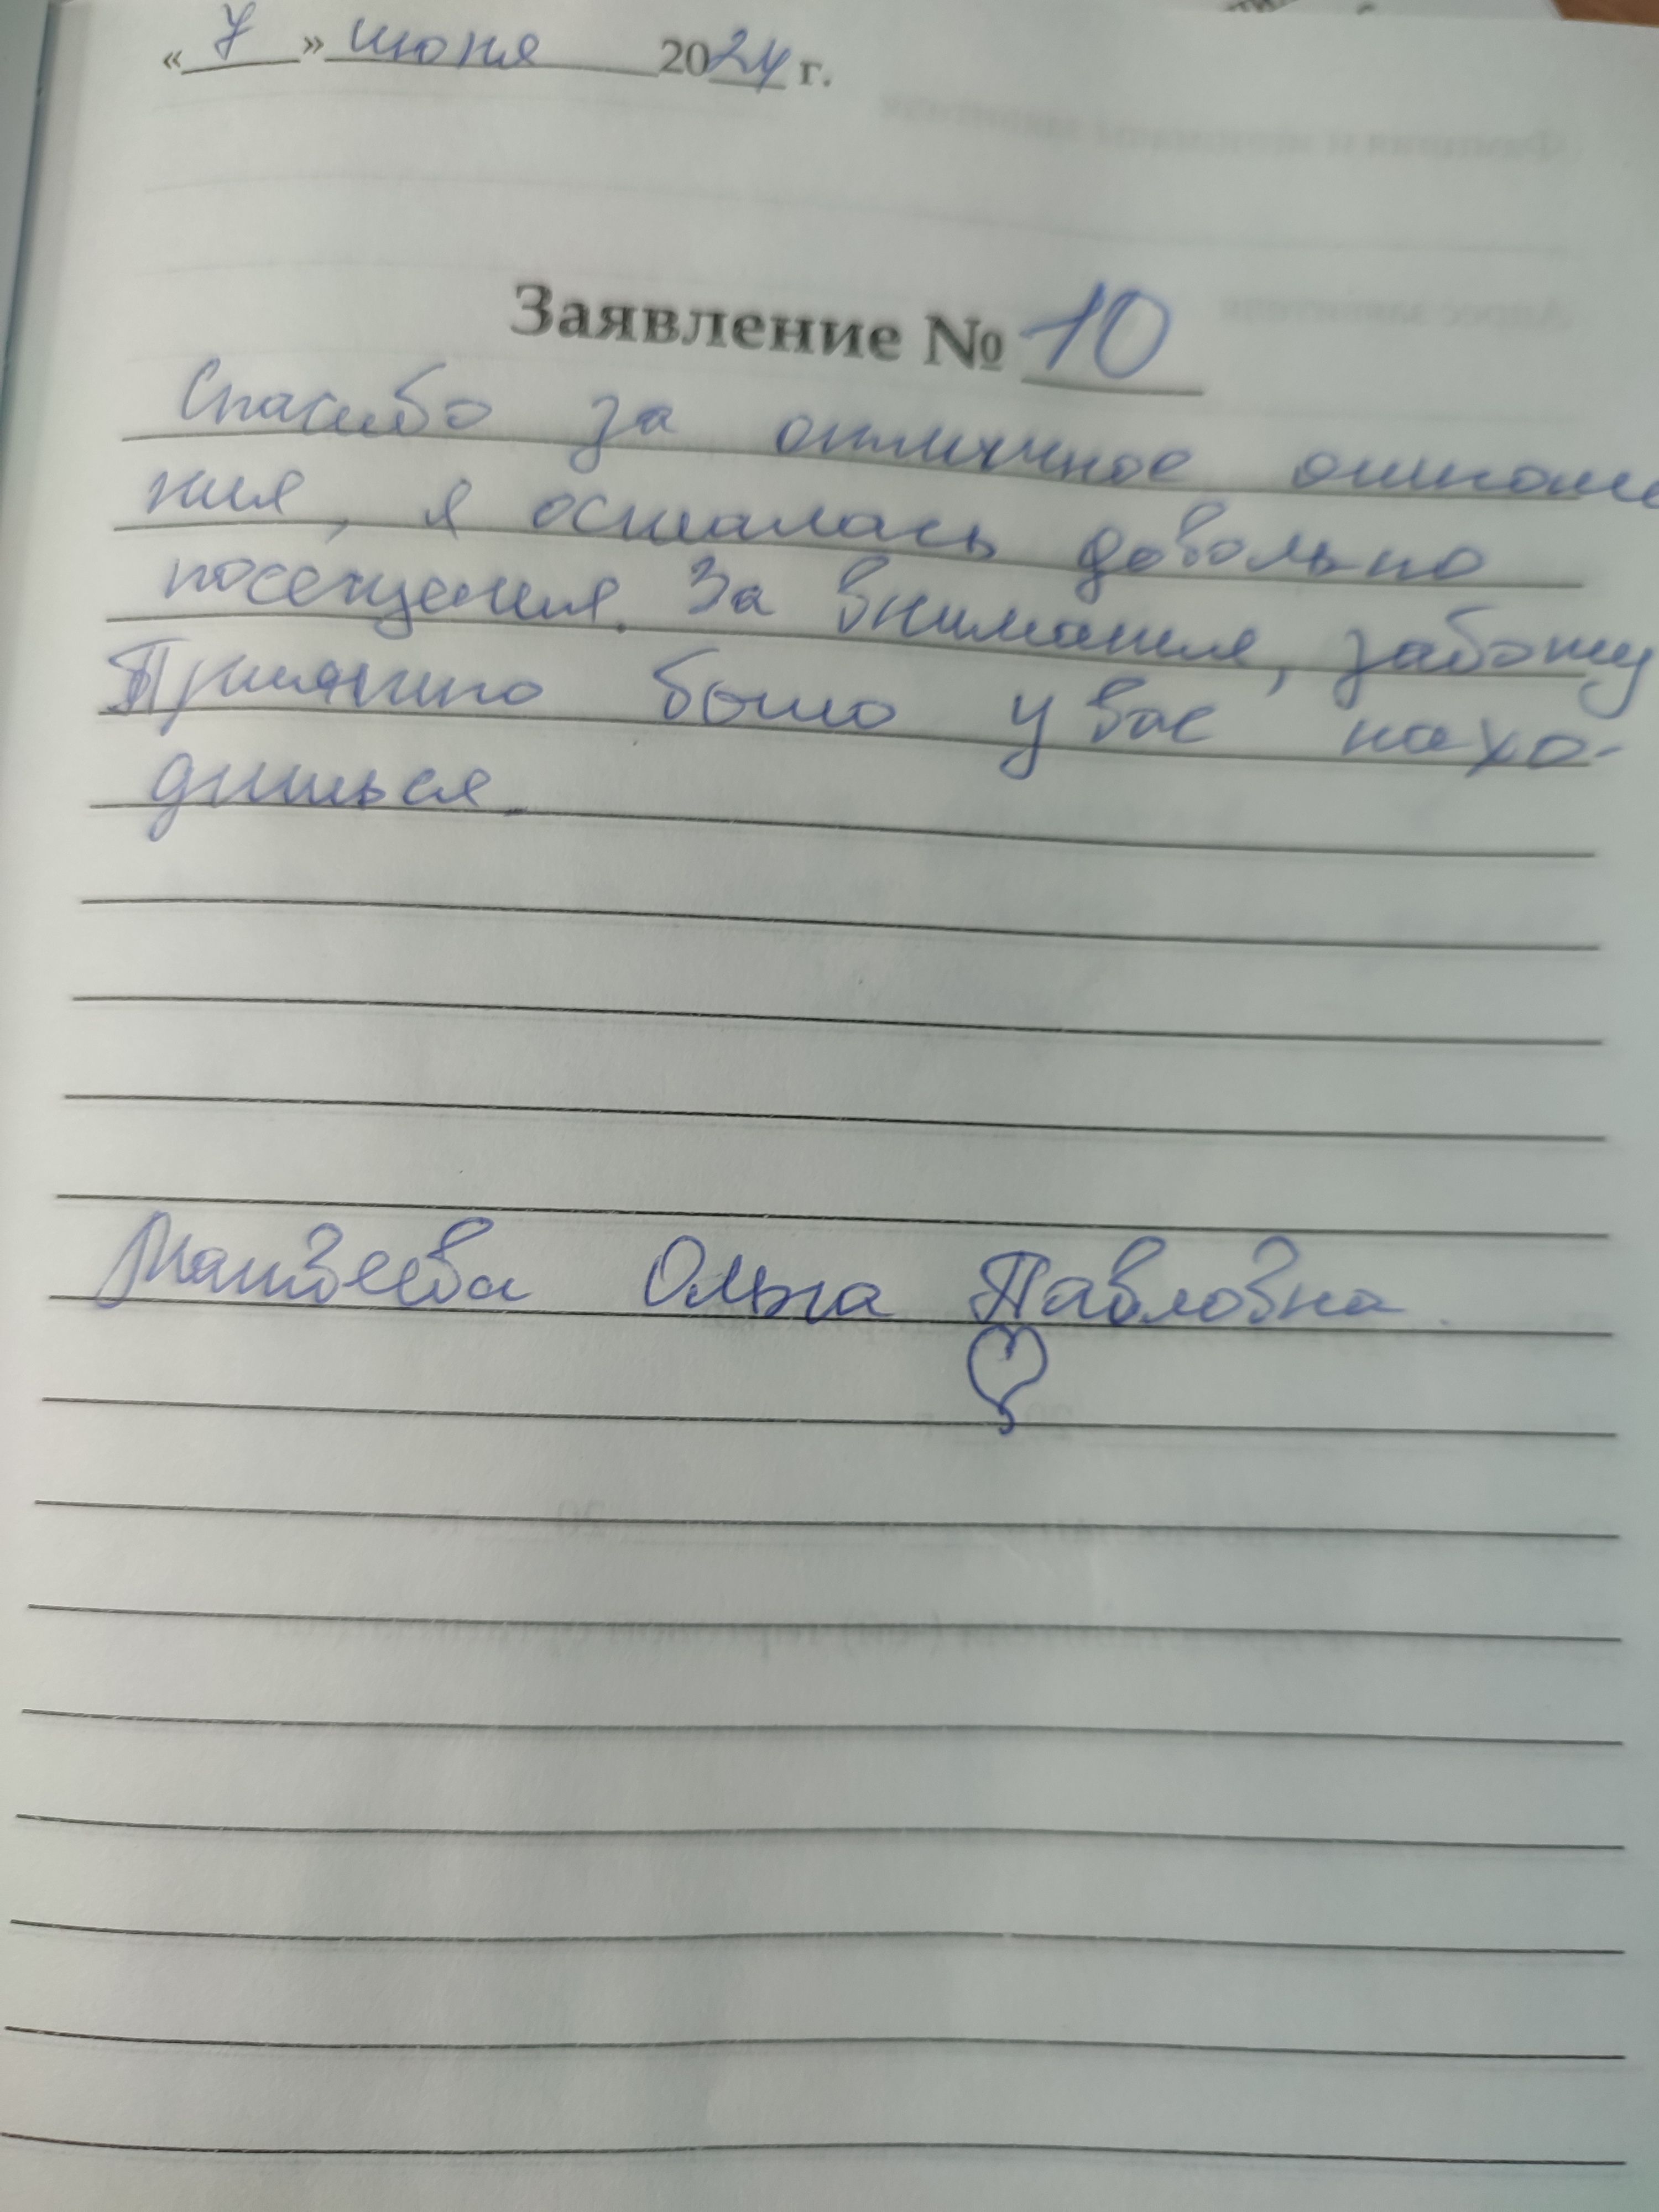 « 7 » июня 2024 г.
Заявление № 10
Спасибо за отличное отноше
ния, я осталась довольно
посещения. За внимания, заботу
Приянтно было у вас нахо-
диться
Матвеева Ольга Павловна